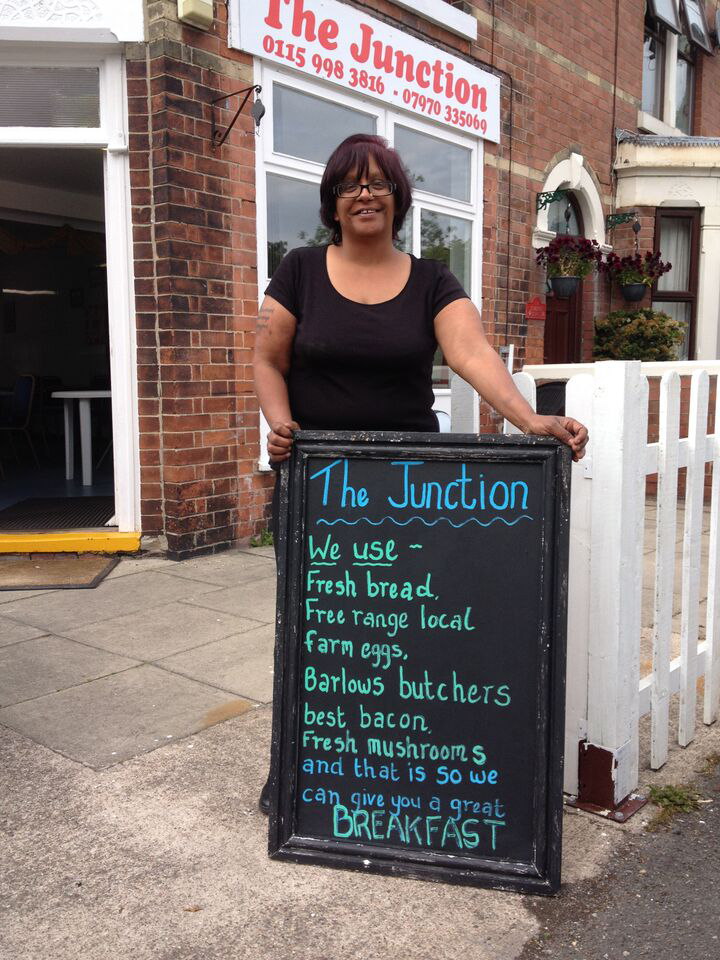 The Junction
0115 998 3816 - 07970 335069
The Junction
We use ~
Fresh bread,
Free range local
farm eggs,
Barlows butchers
best bacon,
Fresh mushrooms
and that is so we
can give you a great
BREAKFAST